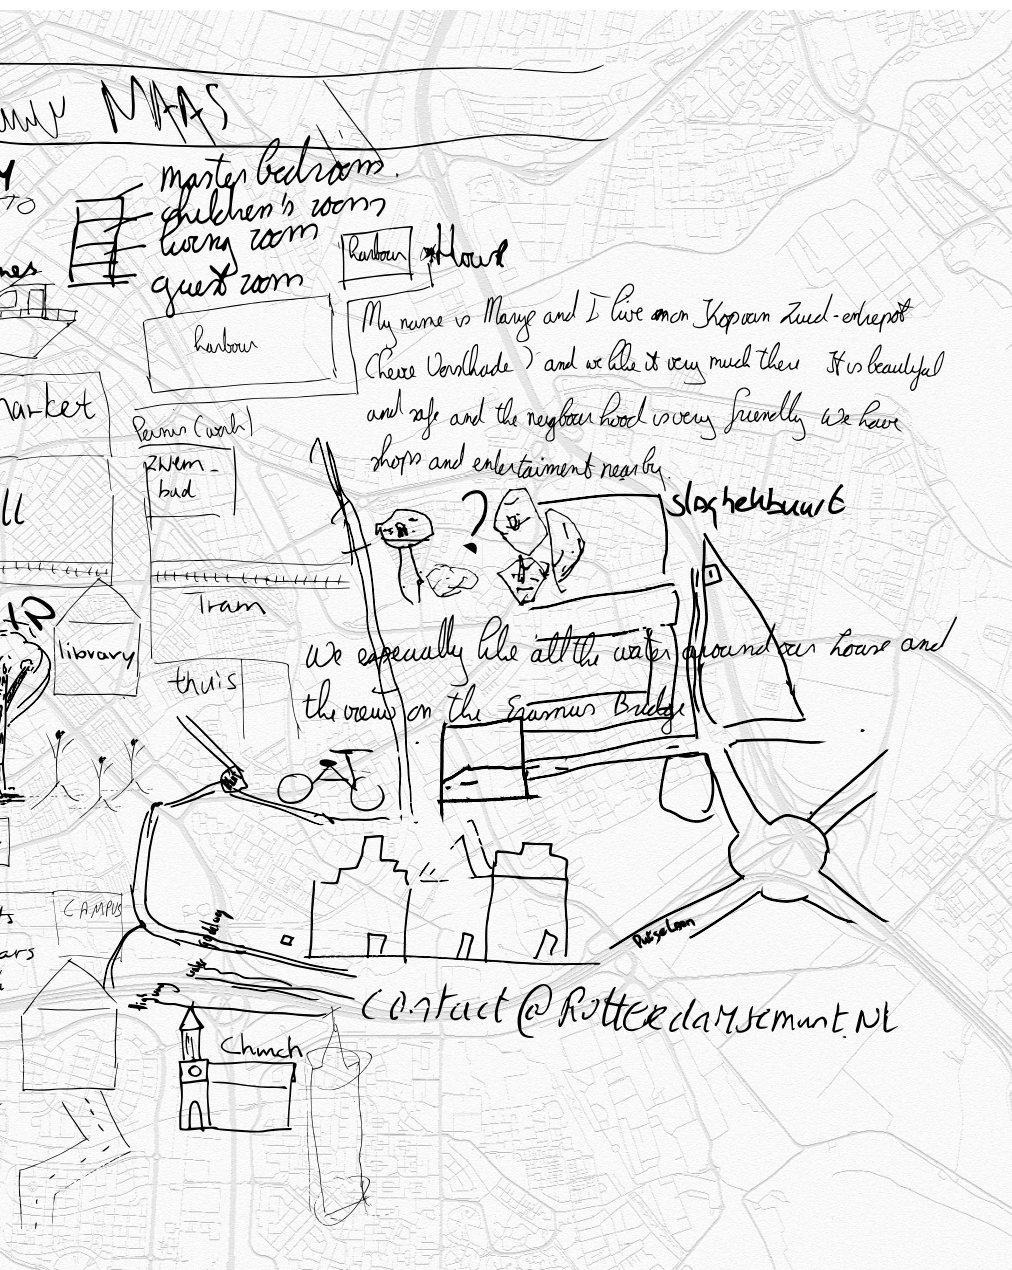 MAAS
master bedroom.
children's room
living room
guest room
harbour
House
TO
harbour
My name is and I live on Kop van Zuid-entrepot
) and we like it very much there It is beautiful
and safe and the neigbourhood is very friendly We have
shops and entertaiment nearby
market
Zwem-
bad
sloghehbuurt
Tram
library
thuis
We especially like all the water around our house and
the view on the Erasmus Bridge
CAMPUS
contact@Rotterdamsemunt.NL
Church